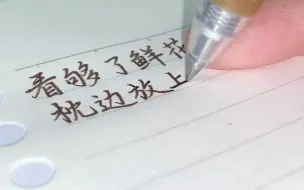 看够了鲜花
枕边放上